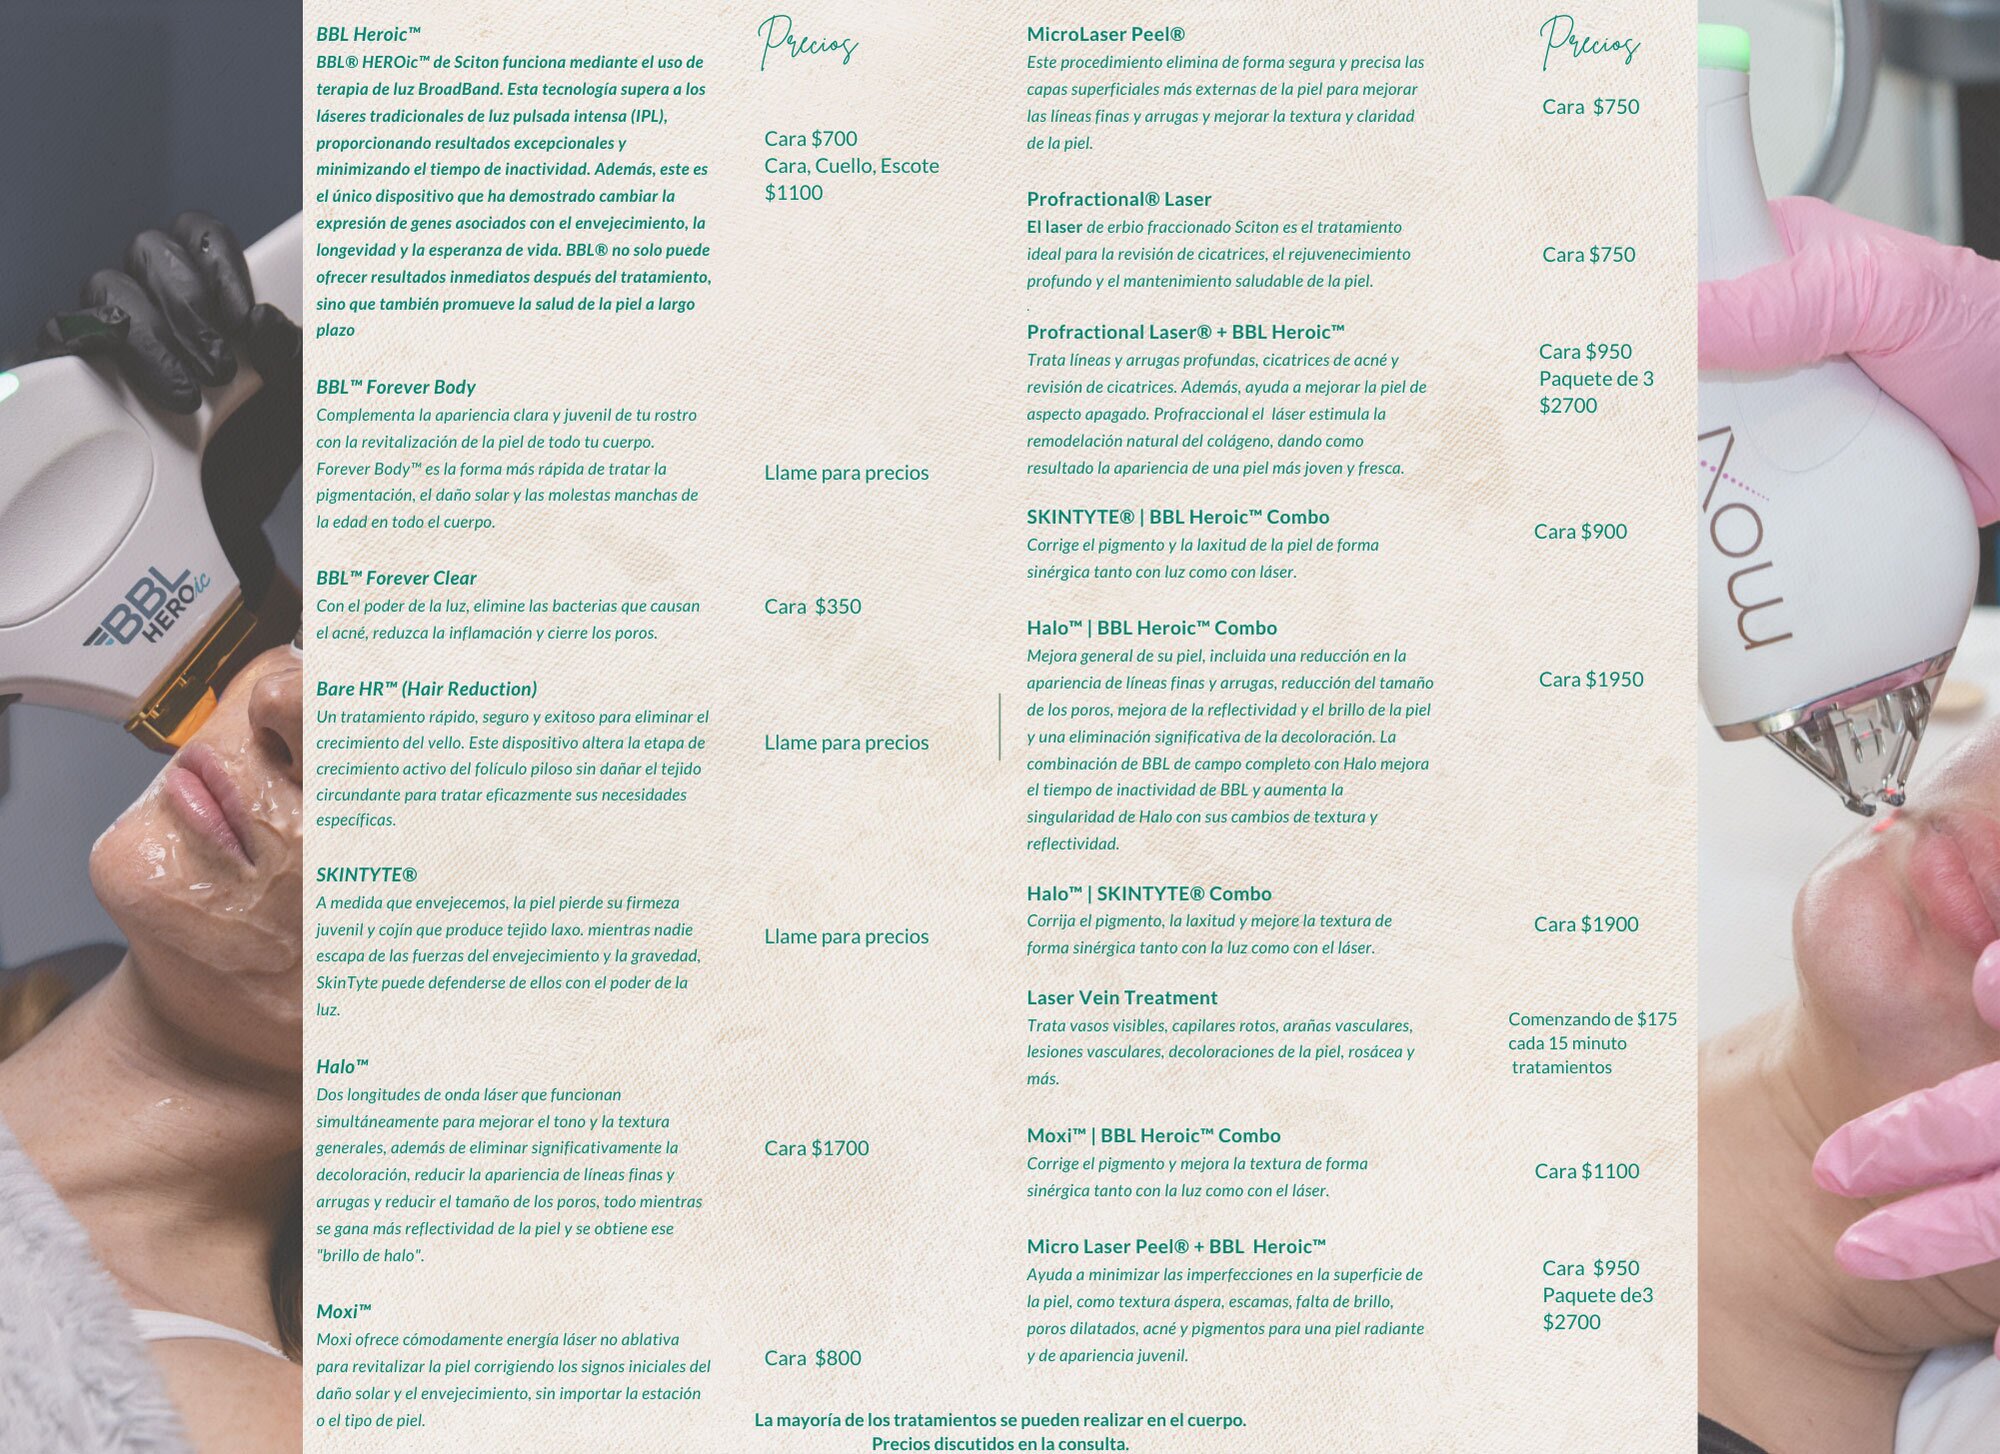 BBL Heroic™
BBL® HEROic™ de Sciton funciona mediante el uso de
terapia de luz BroadBand. Esta tecnología supera a los
láseres tradicionales de luz pulsada intensa (IPL),
proporcionando resultados excepcionales y
minimizando el tiempo de inactividad. Además, este es
el único dispositivo que ha demostrado cambiar la
expresión de genes asociados con el envejecimiento, la
longevidad y la esperanza de vida. BBL® no solo puede
ofrecer resultados inmediatos después del tratamiento,
sino que también promueve la salud de la piel a largo
plazo
Precios
Cara $700
Cara, Cuello, Escote
$1100
BBL™ Forever Body
Complementa la apariencia clara y juvenil de tu rostro
con la revitalización de la piel de todo tu cuerpo.
Forever Body™ es la forma más rápida de tratar la
pigmentación, el daño solar y las molestas manchas de
la edad en todo el cuerpo.
Llame para precios
BBL™ Forever Clear
Con el poder de la luz, elimine las bacterias que causan
el acné, reduzca la inflamación y cierre los poros.
Cara $350
Bare HR™ (Hair Reduction)
Un tratamiento rápido, seguro y exitoso para eliminar el
crecimiento del vello. Este dispositivo altera la etapa de
crecimiento activo del folículo piloso sin dañar el tejido
circundante para tratar eficazmente sus necesidades
específicas.
Llame para precios
SKINTYTE®
A medida que envejecemos, la piel pierde su firmeza
juvenil y cojín que produce tejido laxo. mientras nadie
escapa de las fuerzas del envejecimiento y la gravedad,
SkinTyte puede defenderse de ellos con el poder de la
luz.
Llame para precios
Halo™
Dos longitudes de onda láser que funcionan
simultáneamente para mejorar el tono y la textura
generales, además de eliminar significativamente la
decoloración, reducir la apariencia de líneas finas y
arrugas y reducir el tamaño de los poros, todo mientras
se gana más reflectividad de la piel y se obtiene ese
"brillo de halo".
Cara $1700
Moxi™
Moxi ofrece cómodamente energía láser no ablativa
para revitalizar la piel corrigiendo los signos iniciales del
daño solar y el envejecimiento, sin importar la estación
o el tipo de piel.
Cara $800
MicroLaser Peel®
Este procedimiento elimina de forma segura y precisa las
capas superficiales más externas de la piel para mejorar
las líneas finas y arrugas y mejorar la textura y claridad
de la piel.
Precios
Cara $750
Profractional® Laser
El laser de erbio fraccionado Sciton es el tratamiento
ideal para la revisión de cicatrices, el rejuvenecimiento
profundo y el mantenimiento saludable de la piel.
.
Cara $750
Profractional Laser® + BBL Heroic™
Trata líneas y arrugas profundas, cicatrices de acné y
revisión de cicatrices. Además, ayuda a mejorar la piel de
aspecto apagado. Profraccional el láser estimula la
remodelación natural del colágeno, dando como
resultado la apariencia de una piel más joven y fresca.
Cara $950
Paquete de 3
$2700
SKINTYTE® | BBL Heroic™ Combo
Corrige el pigmento y la laxitud de la piel de forma
sinérgica tanto con luz como con láser.
Cara $900
Halo™ | BBL Heroic™ Combo
Mejora general de su piel, incluida una reducción en la
apariencia de líneas finas y arrugas, reducción del tamaño
de los poros, mejora de la reflectividad y el brillo de la piel
y una eliminación significativa de la decoloración. La
combinación de BBL de campo completo con Halo mejora
el tiempo de inactividad de BBL y aumenta la
singularidad de Halo con sus cambios de textura y
reflectividad.
Cara $1950
Halo™ | SKINTYTE® Combo
Corrija el pigmento, la laxitud y mejore la textura de
forma sinérgica tanto con la luz como con el láser.
Cara $1900
Laser Vein Treatment
Trata vasos visibles, capilares rotos, arañas vasculares,
lesiones vasculares, decoloraciones de la piel, rosácea y
más.
Comenzando de $175
cada 15 minuto
tratamientos
Moxi™ | BBL Heroic™ Combo
Corrige el pigmento y mejora la textura de forma
sinérgica tanto con la luz como con el láser.
Cara $1100
Micro Laser Peel® + BBL Heroic™
Ayuda a minimizar las imperfecciones en la superficie de
la piel, como textura áspera, escamas, falta de brillo,
poros dilatados, acné y pigmentos para una piel radiante
y de apariencia juvenil.
Cara $950
Paquete de3
$2700
La mayoría de los tratamientos se pueden realizar en el cuerpo.
Precios discutidos en la consulta.
BBL
HEROic
moxi